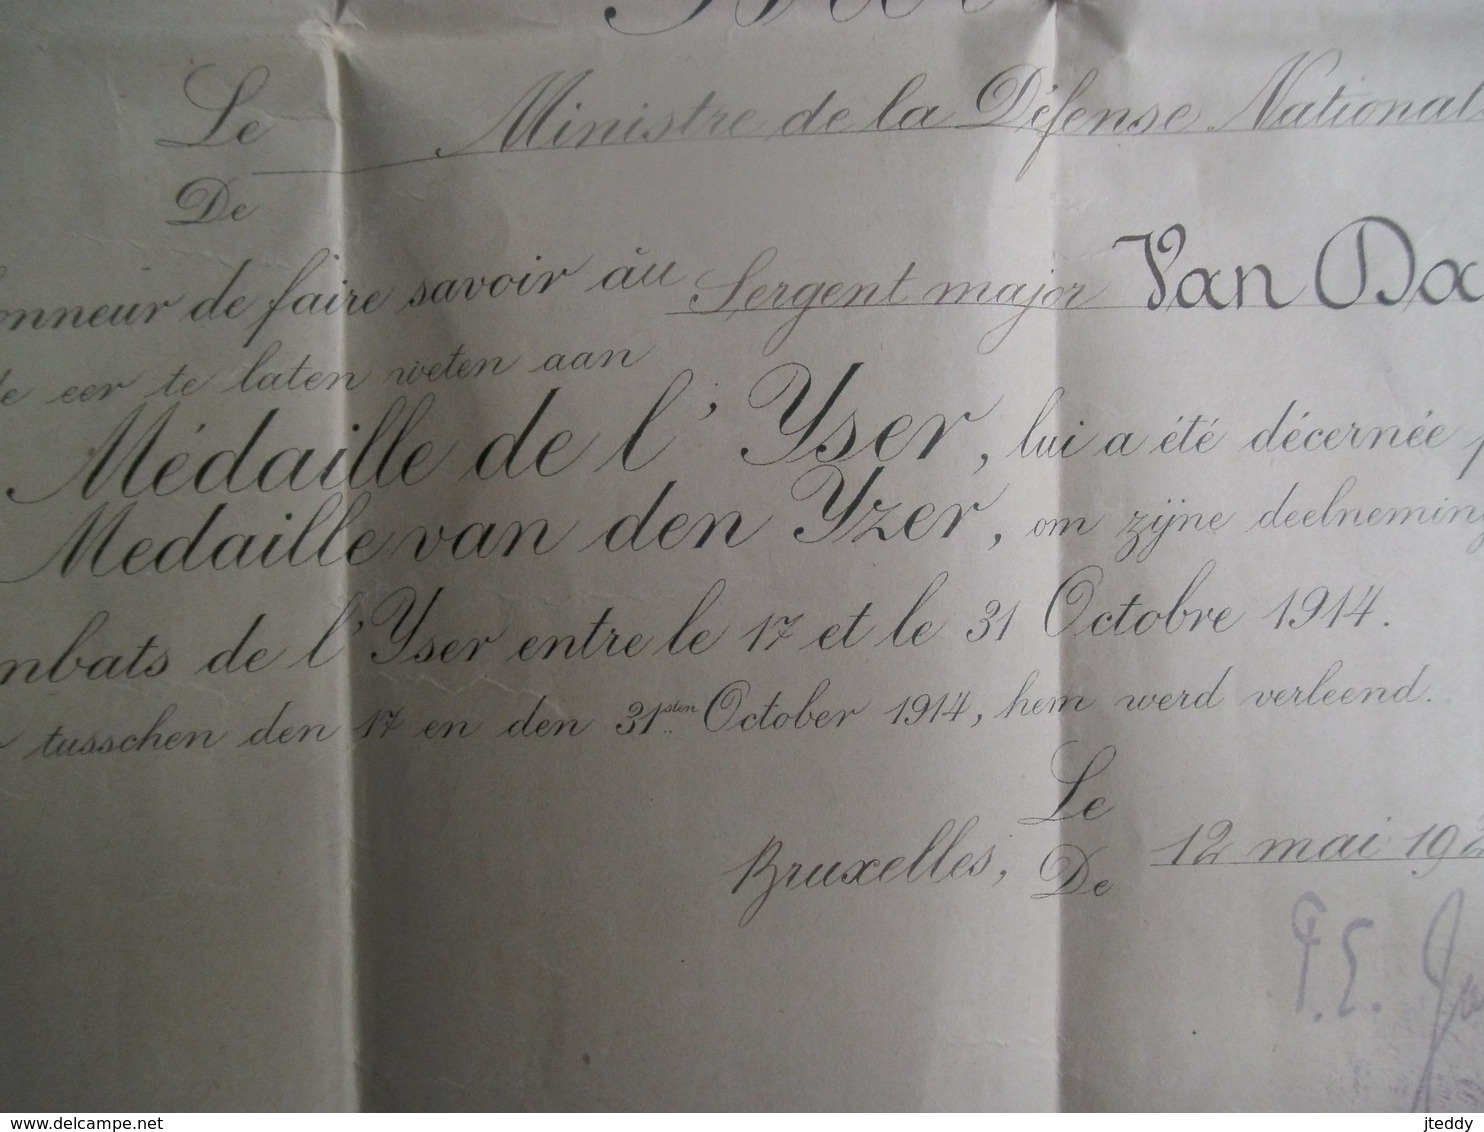 Le Ministre de la Défense National
De
onneur de faire savoir au Sergent major Van Da
le eer te laten weten aan
Médaille de l'Yser, lui a été décernée p
Medaille van den Yzer, om zijne deelneming
mbats de l'Yser entre le 17 et le 31 Octobre 1914.
r tusschen den 17 en den 31sten October 1914, hem werd verleend.
Le
Bruxelles, 12 mai 192
De
F.E.
www.delcampe.net
jteddy